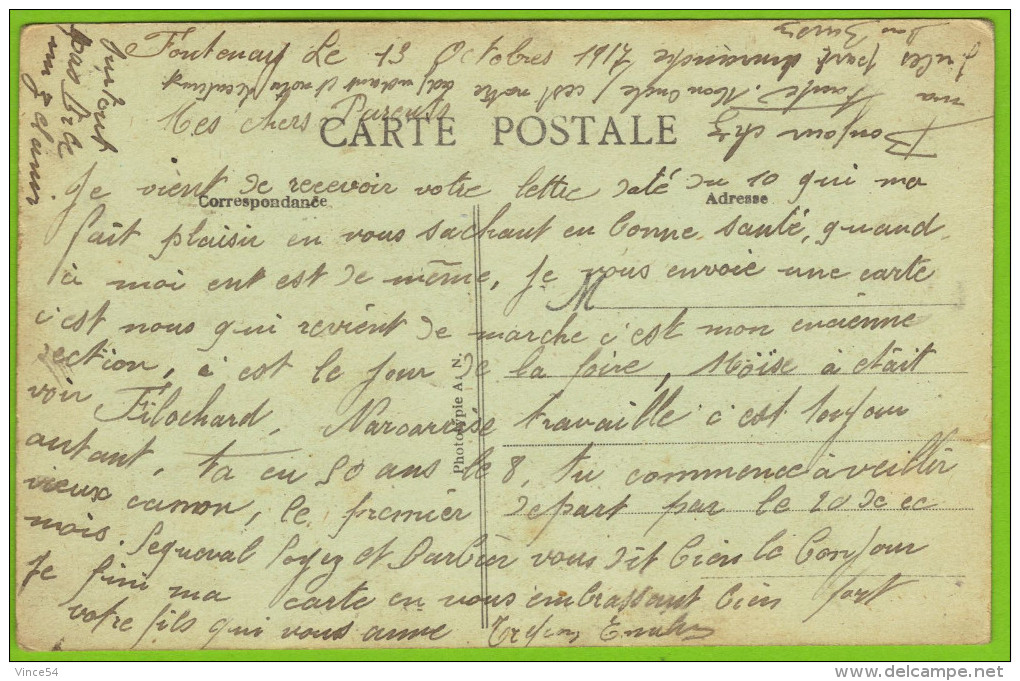 Fontenay Le 13 Octobres 1917
Mes chers Parents
CARTE POSTALE
Correspondance
Adresse
Je vient de recevoir votre lettre daté du 10 qui ma
fait plaisir en vous sachant en bonne santé, quand
à moi ent est de même, Je vous envoie une carte
M
c'est nous qui revient de marche c'est mon encienne
section, c est le jour de la foire, Moïse à était
voir Filochard, travaille c'est toujour
autant, ta eu 50 ans le 8, tu commence à veillir
vieux canon, le premier depart par le 20 de ce
mois. Sequeval et Barbier vous dit bien le bonjour
Je fini ma carte en vous embrassant bien fort
votre fils qui vous aime
Phototypie A. N.
Bonjour chez
ma tante, Mon Oncle, c'est notre et notre
Jules part dimanche
surtout
pas
Vince54
www.delcampe.net